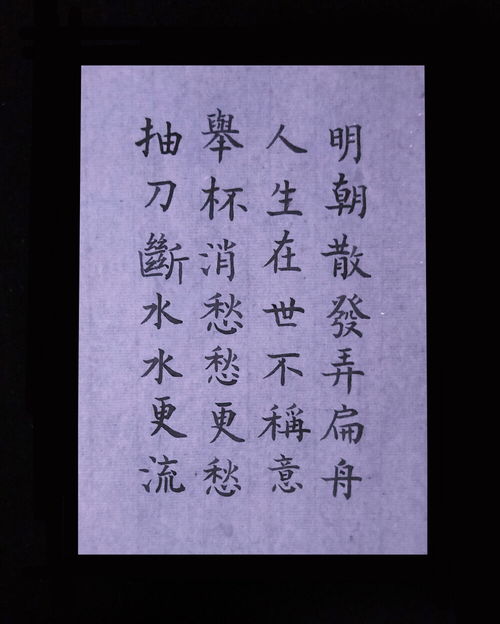 抽刀斷水水更流
舉杯消愁愁更愁
人生在世不稱意
明朝散發弄扁舟